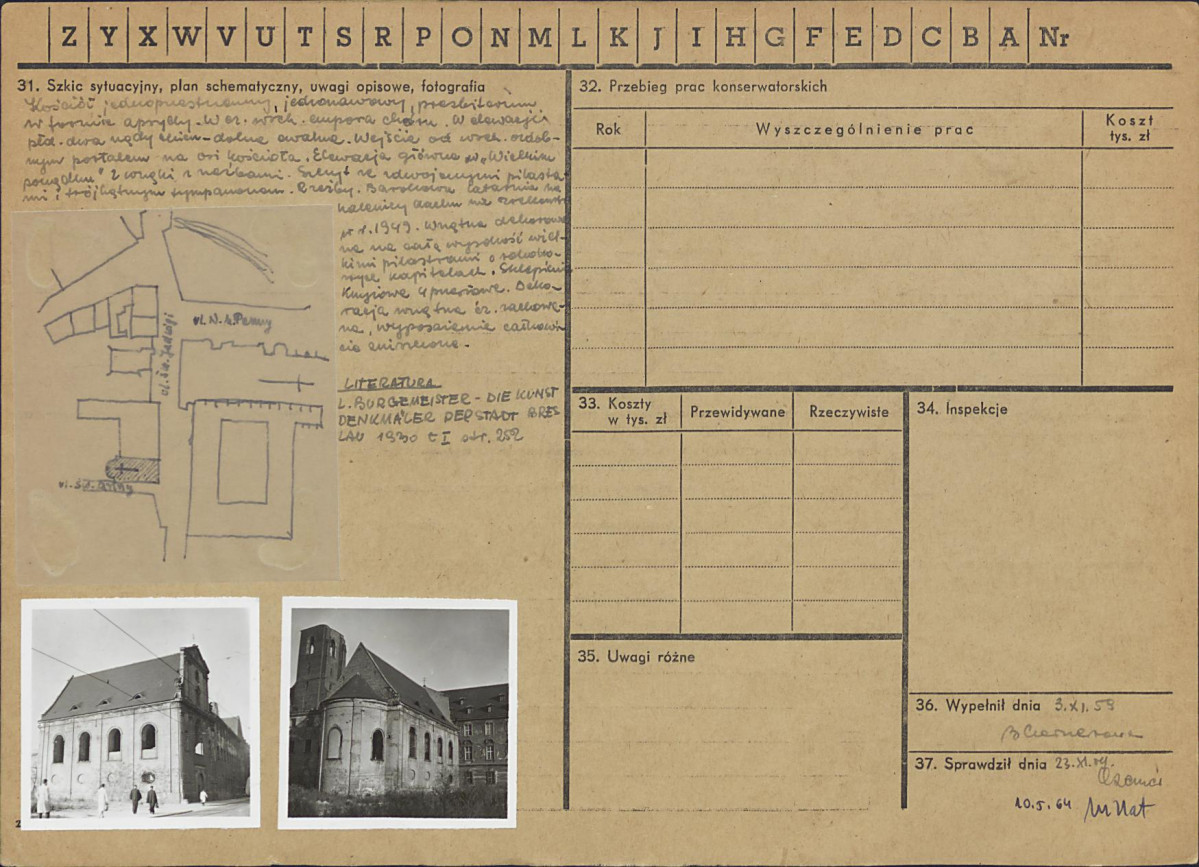 Z Y X W V U T S R P O N M L K J I H G F E D C B A Nr
31. Szkic sytuacyjny, plan schematyczny, uwagi opisowe, fotografia
Kościół jednoprzestrzenny, jednonawowy, prezbiterium
w formie apsydy. W cz. wsch. empora chóru. W elewacji
płd. dwa rzędy okien - dolne owalne. Wejście od wsch. ozdob-
nym portalem na osi kościoła. Elewacja główna w "Wielkim
porządku" z wnęki z rzeźbami. Szczyt ze zdwojonymi pilastra-
mi i trójkątnym tympanonem. Rzeźby. Barokowa latarnia na
kalenicy dachu
w r. 1949. Wnętrze dekorowa-
ne na całą wysokość wiel-
kimi pilastrami o
kapitelach. Sklepienie
krzyżowe Deko-
racja wnętrza cz. zachowa-
na, wyposażenie całkowi-
cie zniszczone.
LITERATURA
L. BURGEMEISTER - DIE KUNST
DENKMÄLER DER STADT BRES
LAU 1930 t I str. 252
ul. N. M. Panny
ul. św. Jadwigi
ul. św. Anny
32. Przebieg prac konserwatorskich
Rok
Wyszczególnienie prac
Koszt
tys. zł
33. Koszty
w tys. zł
Przewidywane
Rzeczywiste
34. Inspekcje
35. Uwagi różne
36. Wypełnił dnia 3.XI.59
37. Sprawdził dnia 23.XI.
10.5.64